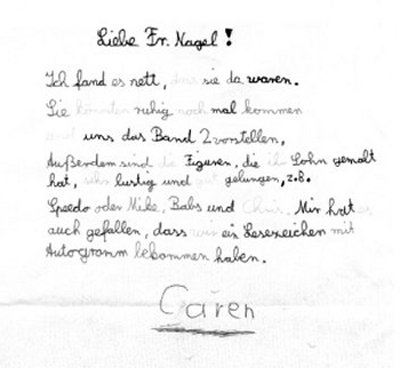 Liebe Fr. Nagel!
Ich fand es nett, dass sie da waren.
Sie könnten ruhig noch mal kommen
und uns das Band 2 vorstellen,
Außerdem sind die Figuren, die ihr Sohn gemalt
hat, sehr lustig und gut gelungen, z.B.
Speedo oder Mike, Babs und Chris. Mir hat es
auch gefallen, dass wir ein Lesezeichen mit
Autogramm bekommen haben.
Caren